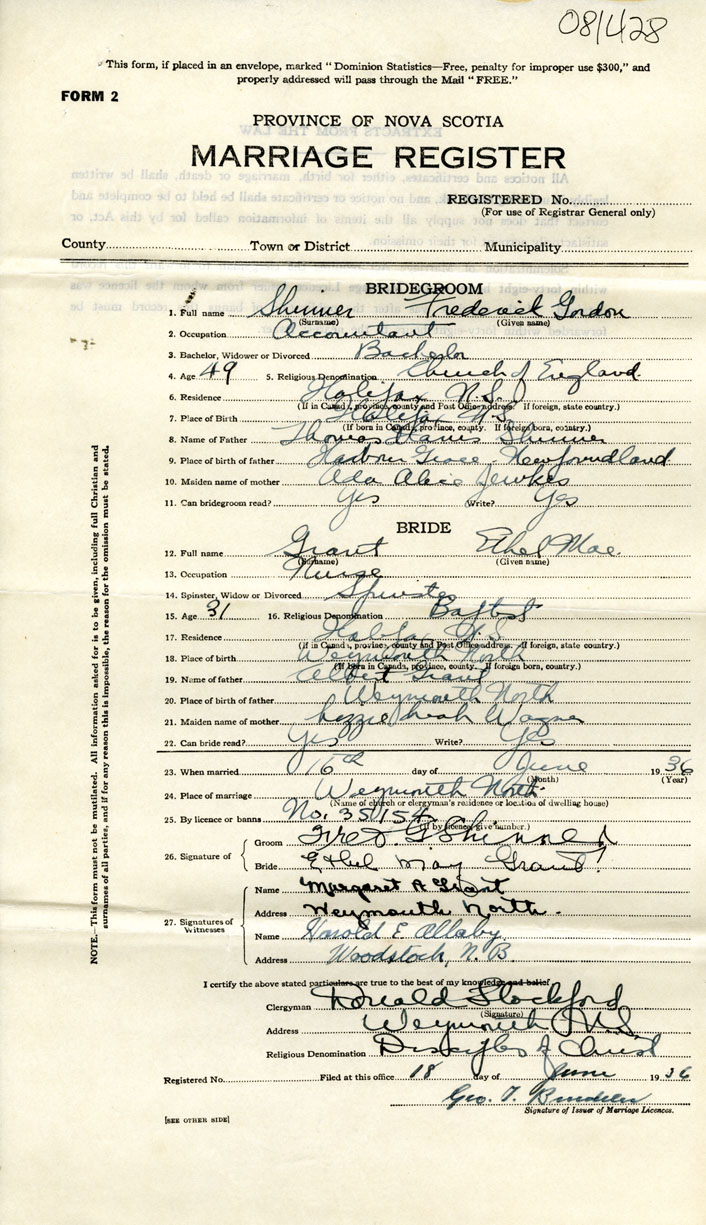 081428
This form, if placed in an envelope, marked "Dominion Statistics—Free, penalty for improper use $300," and
properly addressed will pass through the Mail "FREE."
FORM 2
PROVINCE OF NOVA SCOTIA
MARRIAGE REGISTER
REGISTERED No.
(For use of Registrar General only)
County Town or District Municipality
BRIDEGROOM
1. Full name Skinner Frederick Gordon
(Surname) (Given name)
2. Occupation Accountant
3. Bachelor, Widower or Divorced Bachelor
4. Age 49 5. Religious Denomination Church of England
6. Residence Halifax N.S.
(If in Canada, province, county and Post Office address. If foreign, state country.)
7. Place of Birth Halifax N.S.
(If born in Canada, province, county. If foreign born, country.)
8. Name of Father Thomas Skinner
9. Place of birth of father Harbour Grace Newfoundland
10. Maiden name of mother Ada Alice
11. Can bridegroom read? Yes Write? Yes
BRIDE
12. Full name Grant Ethel Mae.
(Surname) (Given name)
13. Occupation Nurse
14. Spinster, Widow or Divorced Spinster
15. Age 31 16. Religious Denomination Baptist
17. Residence Halifax N.S.
(If in Canada, province, county and Post Office address. If foreign, state country.)
18. Place of birth Weymouth North
(If born in Canada, province, county. If foreign born, country.)
19. Name of father Albert Grant
20. Place of birth of father Weymouth North
21. Maiden name of mother Lizzie Leah Wagner
22. Can bride read? Yes Write? Yes
23. When married 16th day of June 1936
(Month) (Year)
24. Place of marriage Weymouth North.
(Name of church or clergyman's residence or location of dwelling house)
25. By licence or banns No. 35154
(If by licence, give number.)
26. Signature of
Groom Fred G Skinner
Bride Ethel May Grant
27. Signatures of Witnesses
Name Margaret A Grant
Address Weymouth North.
Name Harold E Allaby
Address Woodstock, N.B
I certify the above stated particulars are true to the best of my knowledge and belief
Clergyman Donald Stockford
(Signature)
Address Weymouth N.S
Religious Denomination Disciples of Christ
Registered No. Filed at this office 18 day of June 1936
Geo. T.
Signature of Issuer of Marriage Licences.
[SEE OTHER SIDE]
NOTE.—This form must not be mutilated. All information asked for is to be given, including full Christian and
surnames of all parties, and if for any reason this is impossible, the reason for the omission must be stated.